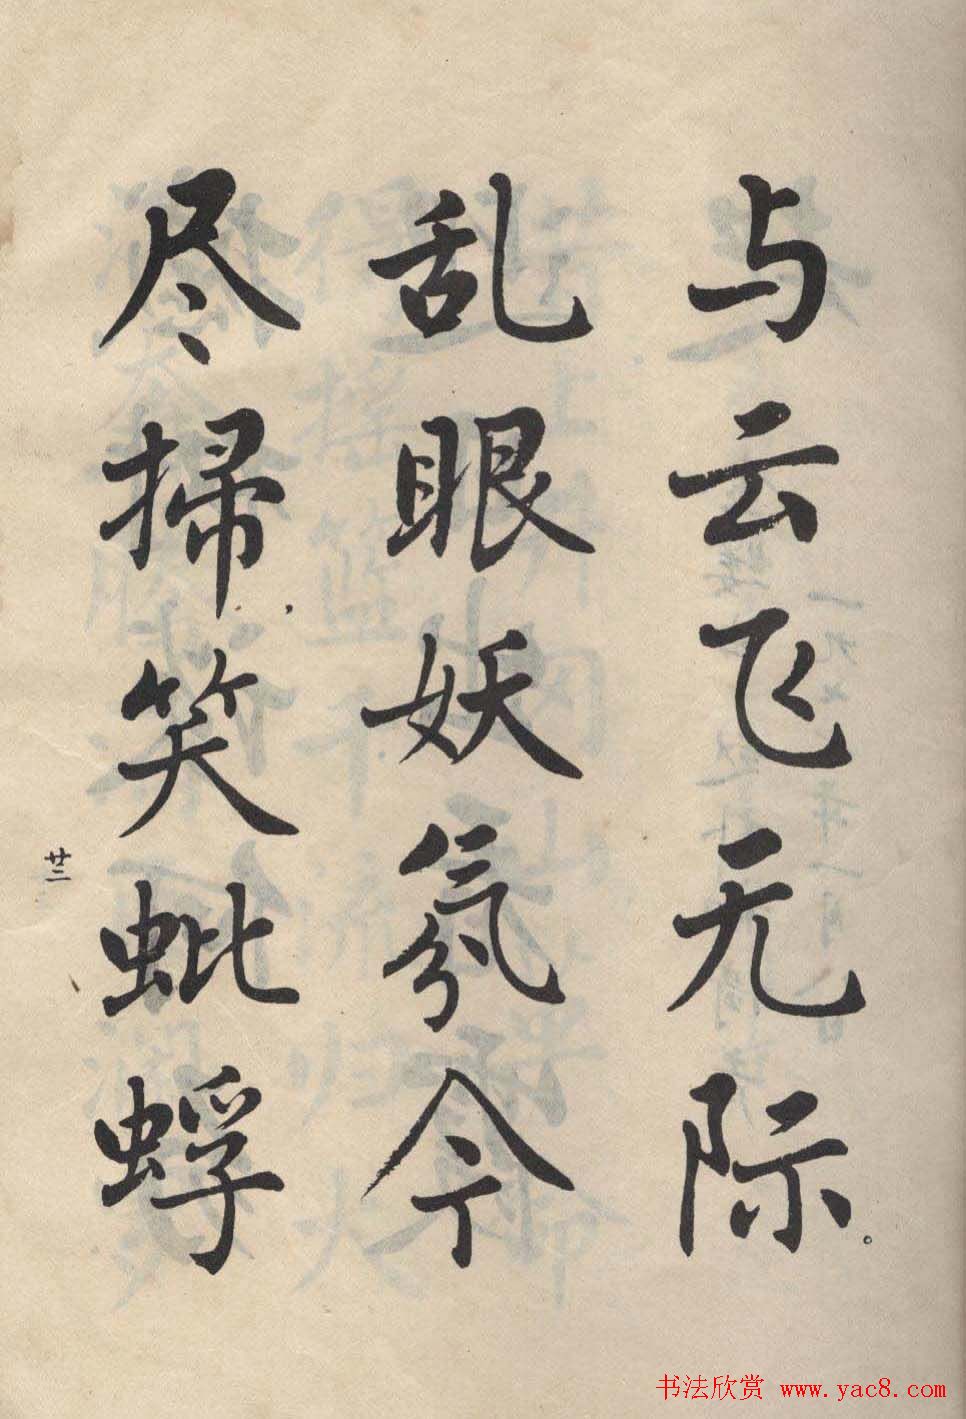 与云飞无际。
乱眼妖氛今
尽掃，笑蚍蜉
廿三
书法欣赏 www.yac8.com